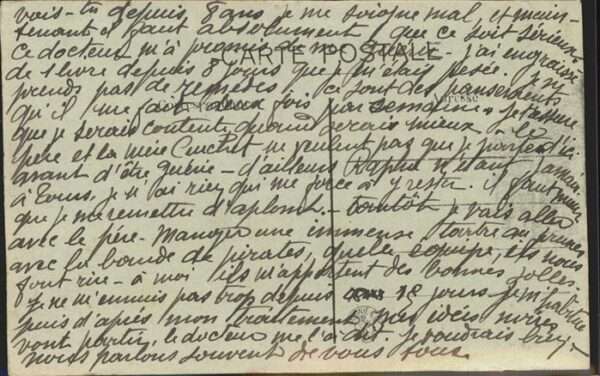 vois-tu depuis 8 ans je me soigne mal, et main-
tenant il faut absolument que ce soit sérieux
ce docteur m'a promis de me j'ai engraissé
CARTE POSTALE
de 1 livre depuis 8 jours que je m'étais pesée. je n'y
prends pas de remèdes. ce sont des pansements
qu'il me fait deux fois par semaine. j'espère
que je serai contente quand j'irai mieux. le
père et la mère ne veulent pas que je parte d'ici
avant d'être guérie - d'ailleurs n'étant jamais
à Tours, je n'ai rien qui me force à y rester. il faut mieux
que je me remette d'aplomb. - tantôt je vais aller
avec le père manger une immense tarte aux prunes
avec la bande de pirates, quelle équipe, ils nous
font rire - à moi ils m'apportent des bonnes
je ne m'ennuis pas trop depuis 18 jours je m'habitue
puis d'après mon traitement mes idées noires
vont partir, le docteur me l'a dit. je voudrais bien
nous parlons souvent de vous tous.